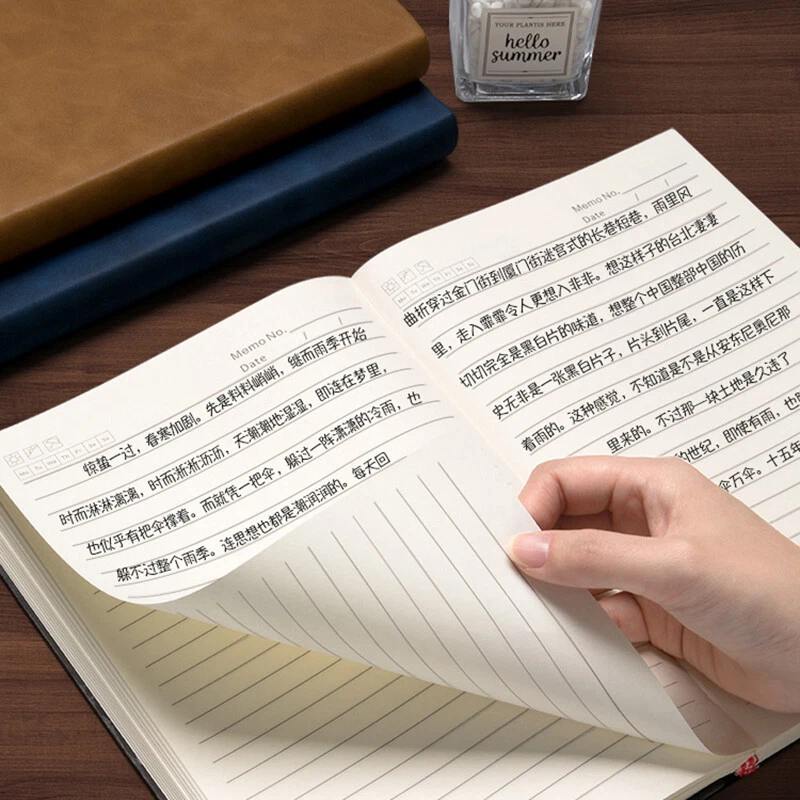 YOUR PLANTIS HERE
hello
summer
Memo No.
Date / /
Mo Tu We Th Fr Sa Su
惊蛰一过，春寒加剧。先是料料峭峭，继而雨季开始
时而淋淋漓漓，时而淅淅沥沥，天潮潮地湿湿，即连在梦里，
也似乎有把伞撑着。而就凭一把伞，躲过一阵潇潇的冷雨，也
躲不过整个雨季。连思想也都是潮润润的。每天回
Memo No.
Date / /
Mo Tu We Th Fr Sa Su
曲折穿过金门街到厦门街迷宫式的长巷短巷，雨里风
里，走入霏霏令人更想入非非。想这样子的台北凄凄
切切完全是黑白片的味道，想整个中国整部中国的历
史无非是一张黑白片子，片头到片尾，一直是这样下
着雨的。这种感觉，不知道是不是从安东尼奥尼那
里来的。不过那一块土地是久违了
的世纪，即使有雨，也
伞万伞。十五年